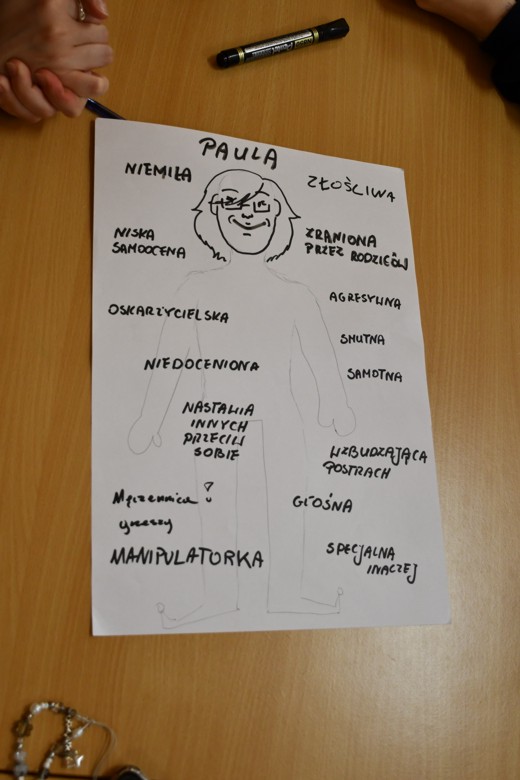 PAULA
NIEMIŁA
ZŁOŚLIWA
NISKA
SAMOOCENA
ZRANIONA
PRZEZ RODZICÓW
OSKARŻYCIELSKA
AGRESYWNA
SMUTNA
NIEDOCENIONA
SAMOTNA
NASTAWIA
INNYCH
PRZECIW
SOBIE
WZBUDZAJĄCA
POSTRACH
Męczennica
?
GŁOŚNA
MANIPULATORKA
SPECJALNA
INACZEJ